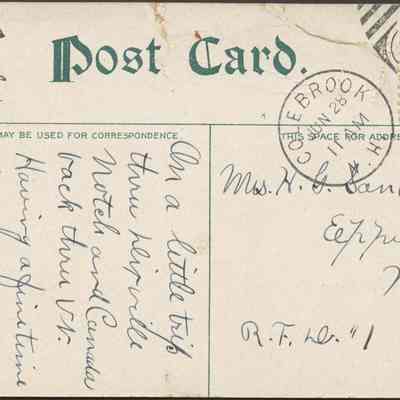 Post Card.
MAY BE USED FOR CORRESPONDENCE
THIS SPACE FOR ADDRE
COLEBROOK
JUN 28
11 AM
N.H.
On a little trip
thru Dixville
Notch and Canada
back thru Vt.
Having a fine time
Mrs. H. G. San
Epp
R.F.D. #1